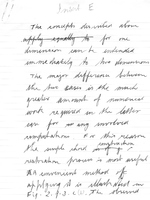 The concepts described above
apply equally to for one
dimension can be extended
immediately to two dimensions
The major difference between
the two cases is the much
greater amount of numerical
work required in the latter
case for any involved
computation. For this reason
the simple short construction
relaxation process is most useful
A convenient method of
applying it is illustrated in
Fig. 2. The observed